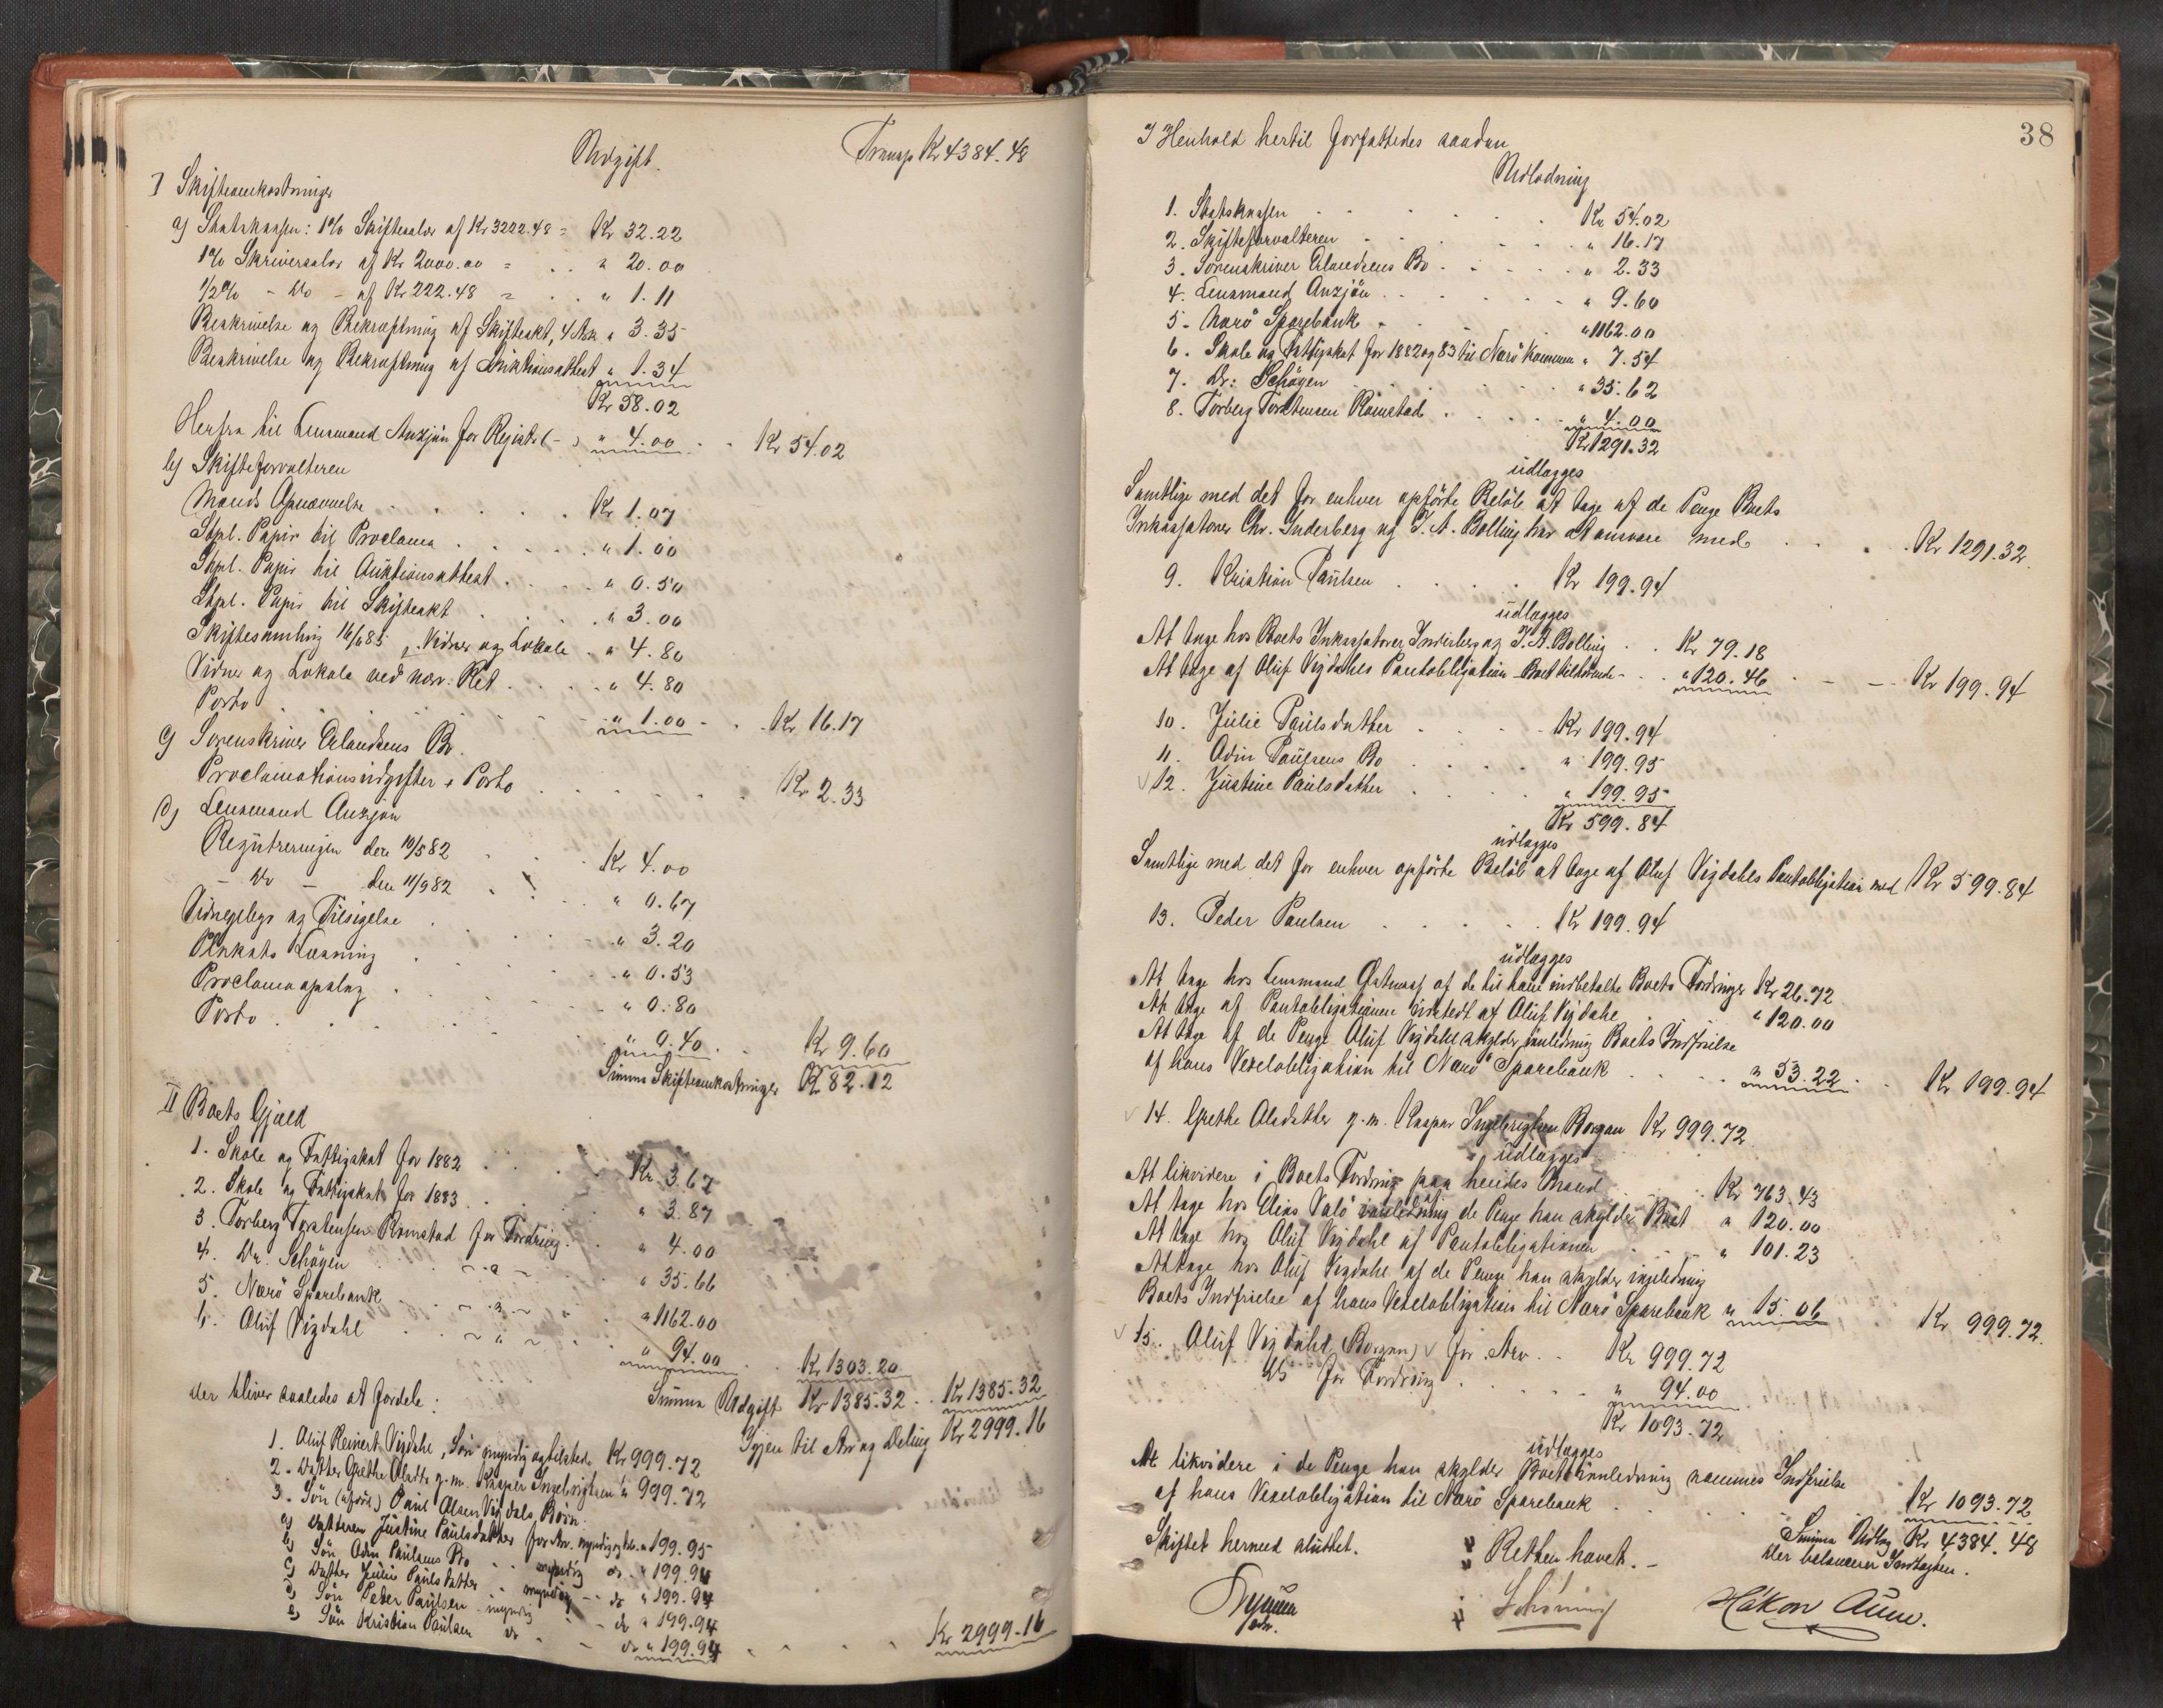 Udgift. Transp Kr 4384.48
I Skifteomkostninger
a) Statskassen: 1% Skiftesalær af Kr 3222.48 = Kr 32.22
1% Skriversalær af Kr 2000.00 = . . " 20.00
1/2% - Do - af Kr 222.48 = . . " 1.11
Beskrivelse og Bekræftning af Skifteakt, 4 Ark " 3.35
Beskrivelse og Bekræftning af Auktionsattest " 1.34
Kr 58.02
Herfra til Lensmand Anzjøn for Registr. (-) " 4.00 . . Kr 54.02
b) Skifteforvalteren
Mænds Opnævnelse . . . . . Kr 1.07
Stpl. Papir til Proclama . . . . . " 1.00
Stpl. Papir til Auktionsattest . . . . " 0.50
Stpl. Papir til Skifteakt . . . . " 3.00
Skiftesamling 16/6 85, Vidner og Lokale . " 4.80
Vidner og Lokale ved nærv. Ret . . . . " 4.80
Porto . . . . . " 1.00 - . Kr 16.17
c) Sorenskriver Erlandsens Bo.
Proclamationsudgifter + Porto . . . . . . Kr 2.33
d) Lensmand Anzjøn
Registreringen den 10/5 82 . . . Kr 4.00
- Do - den 11/9 82 . . . " 0.67
Vidnegebyr og Tilsigelse . . . " 3.20
Plakats Læsning . . . " 0.53
Proclamaopslag . . . " 0.80
Porto . . . . . " 0.40 . . Kr 9.60
Summa Skifteomkostninger Kr 82.12
II Boets Gjæld
1. Skole og Fattigskat for 1882 . . . . Kr 3.67
2. Skole og Fattigskat for 1883 . . . . " 3.87
3. Torberg Torstensen Romstad for Fordring . . " 4.00
4. Dr. Schøgen . . ~ " ~ . . " 35.66
5. Nærö Sparebank . . ~ " ~ . . " 1162.00
6. Oluf Vigdahl . . ~ " ~ . . " 94.00 . . Kr 1303.20
Summa Udgift Kr 1385.32 . . Kr 1385.32
der bliver saaledes at fordele: Igjen til Arv og Deling Kr 2999.16
1. Oluf Reinert Vigdahl, Sön myndig og tilstede Kr 999.72
2. Datter Grethe Olsdtr g. m. Kasper Ingebrigtsen " 999.72
3. Sön (afdöd) Paul Olsen Vigdals Børn.
a) Datteren Justine Paulsdatter for Arv. myndig " 199.95
b) Sön Odin Paulsens Bo . . do " 199.94
c) Datter Julie Paulsdatter . . myndig . . do " 199.94
d) Sön Peder Paulsen . . myndig . . do " 199.94
e) Sön Kristian Paulsen do . . do " 199.94 . . . . Kr 2999.16
38
I Henhold hertil forfattedes saadan
Udlodning
1. Statskassen . . . . . . Kr 54.02
2. Skifteforvalteren . . . . . " 16.17
3. Sorenskriver Erlandsens Bo . . . . . " 2.33
4. Lensmand Anzjön . . . . . " 9.60
5. Nærö Sparebank . . . . . " 1162.00
6. Skole og Fattigskat for 1882 og 83 til Nærö Kommune " 7.54
7. Dr: Schøgen . . . . . " 35.62
8. Torberg Torstensen Romstad . . . . . " 4.00
Kr 1291.32
udlægges
Samtlige med det for enhver opförte Belöb at tage af de Penge Boets
Inkassatorer Chr. Inderberg og T. A. Bolling har at ansvare med . . . Kr 1291.32
9. Kristian Paulsen . . . . Kr 199.94
udlægges
At tage hos Boets Inkassatorer Inderberg og T. A. Bolling . . Kr 79.18
At tage af Oluf Vigdahls Pantobligation Boet tilhörende . . " 120.46 - - Kr 199.94
10. Julie Paulsdatter . . . . Kr 199.94
11. Odin Paulsens Bo . . . . " 199.95
12. Justine Paulsdatter . . . . " 199.95
Kr 599.84
udlægges
Samtlige med det for enhver opförte Belöb at tage af Oluf Vigdahls Pantobligation med Kr 599.84
13. Peder Paulsen . . . . Kr 199.94
udlægges
At tage hos Lensmand af de til ham indbetalte Boets Fordringer Kr 26.72
At tage af Pantobligationen udstedt af Oluf Vigdahl . . " 120.00
At tage af de Penge Oluf Vigdahl skylder i anledning Boets Indfrielse
af hans Vexelobligation til Nærö Sparebank . . . . " 53.22 . . Kr 199.94
14. Grethe Olsdatter g. m. Kasper Ingebrigtsen Borgan Kr 999.72
udlægges
At likvidere i Boets Fordring paa hendes Mand . . . . Kr 763.43
At tage hos Elias Valö af de Penge han skylder Boet " 120.00
At tage hos Oluf Vigdahl af Pantobligationen . . . . " 101.23
At tage hos Oluf Vigdahl af de Penge han skylder i anledning
Boets Indfrielse af hans Vexelobligation til Nærö Sparebank " 15.06 . . Kr 999.72.
15. Oluf Vigdahl (Borgan) for Arv . . Kr 999.72
Do for Fordring . . . . " 94.00
Kr 1093.72
udlægges
At likvidere i de Penge han skylder Boet i anledning sammes Indfrielse
af hans Vexelobligation til Nærö Sparebank . . . . Kr 1093.72
Summa Udlæg Kr 4384.48
Skiftet hermed sluttet. Retten hævet. - der balancerer Indtægten.
Schøning Håkon Aune.